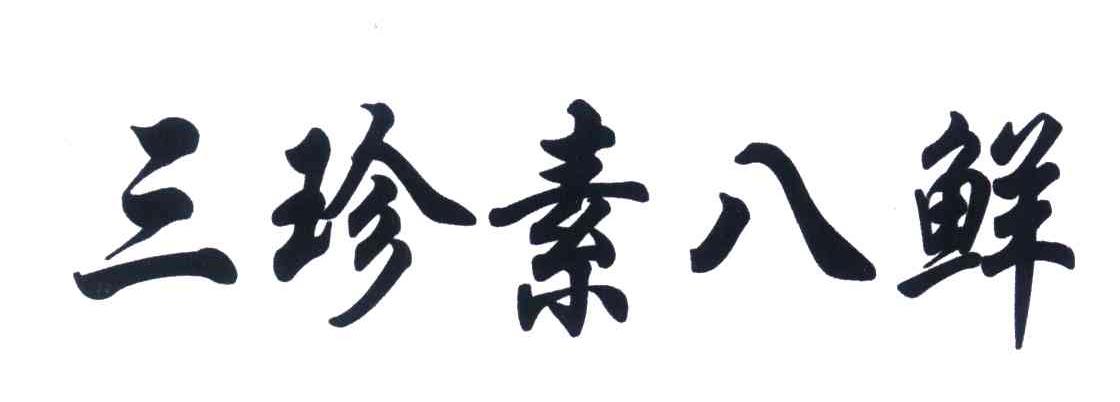 三珍素八鲜